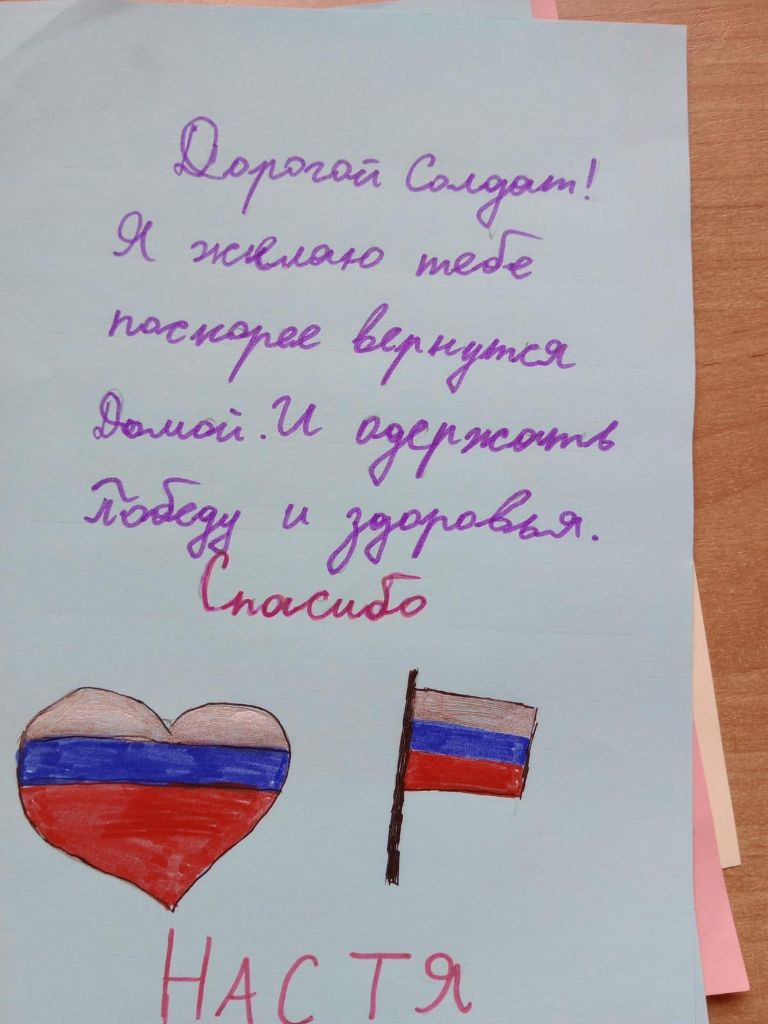 Дорогой Солдат!
Я желаю тебе
поскорее вернутся
Домой. И одержать
Победу и здоровья.
Спасибо
НАСТЯ